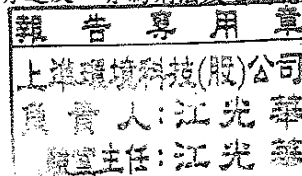 報告專用章
上準環境科技(股)公司
負責人:江光華
檢室主任:江光華